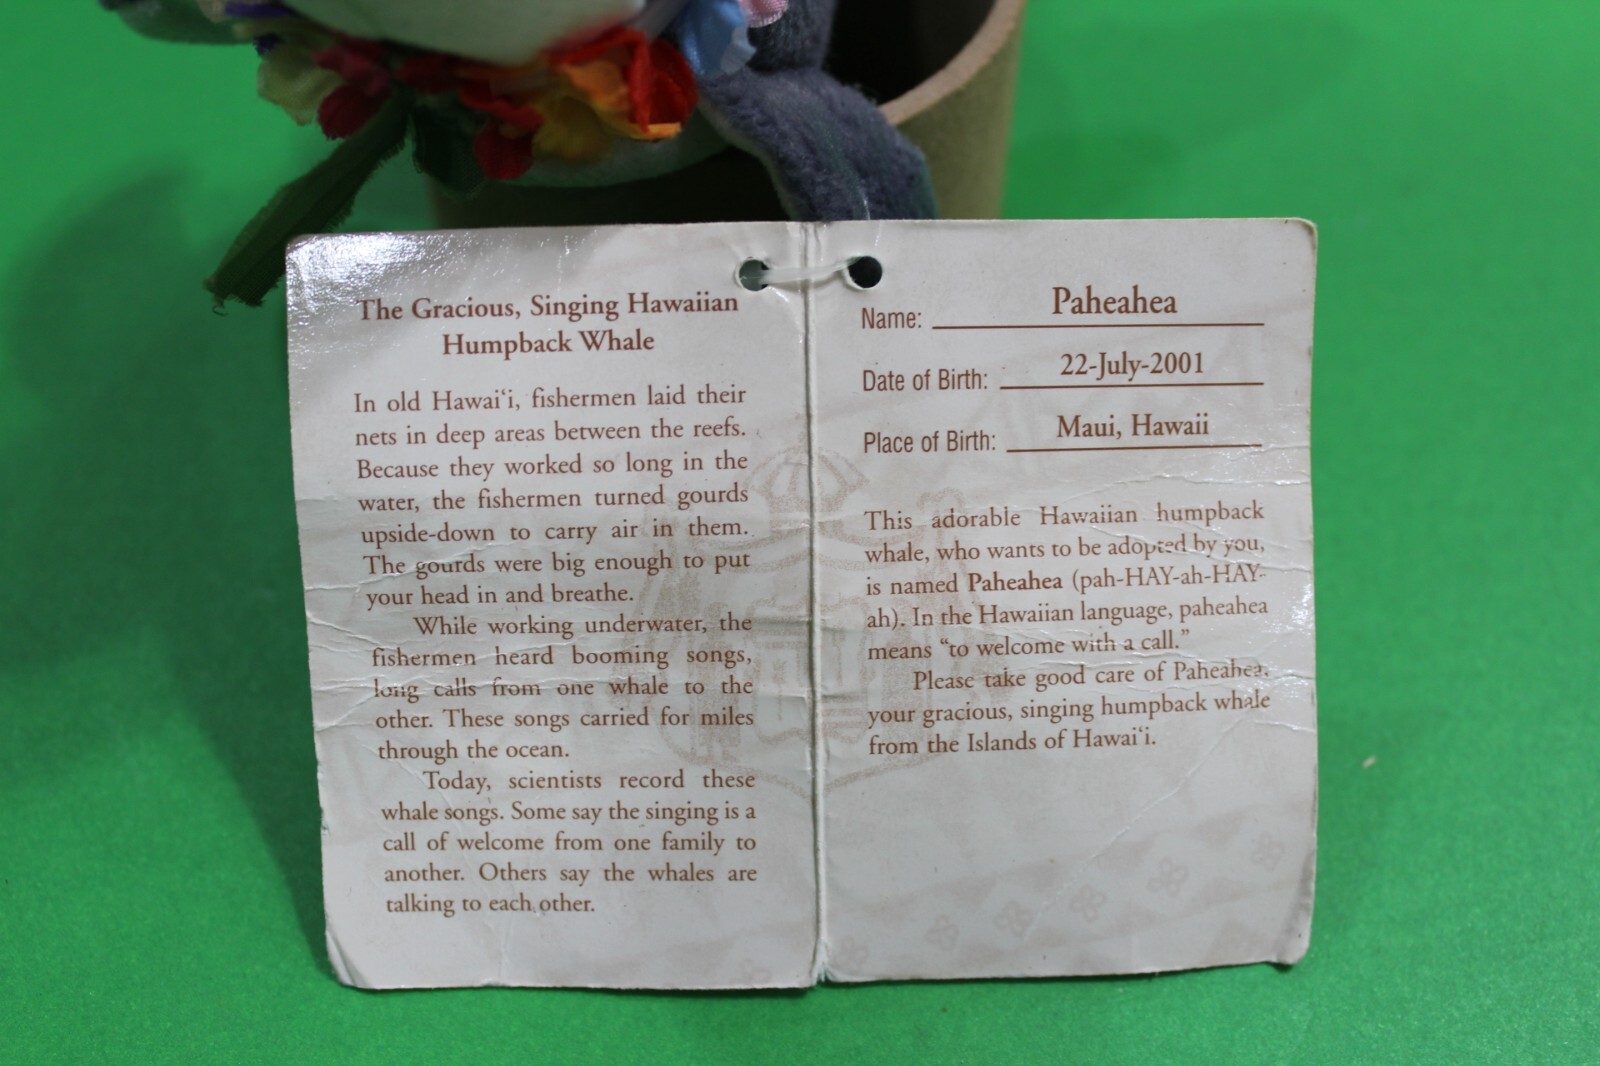 The Gracious, Singing Hawaiian
Humpback Whale
In old Hawaiʻi, fishermen laid their
nets in deep areas between the reefs.
Because they worked so long in the
water, the fishermen turned gourds
upside-down to carry air in them.
The gourds were big enough to put
your head in and breathe.
While working underwater, the
fishermen heard booming songs,
long calls from one whale to the
other. These songs carried for miles
through the ocean.
Today, scientists record these
whale songs. Some say the singing is a
call of welcome from one family to
another. Others say the whales are
talking to each other.
Name: Paheahea
Date of Birth: 22-July-2001
Place of Birth: Maui, Hawaii
This adorable Hawaiian humpback
whale, who wants to be adopted by you,
is named Paheahea (pah-HAY-ah-HAY-
ah). In the Hawaiian language, paheahea
means “to welcome with a call.”
Please take good care of Paheahea,
your gracious, singing humpback whale
from the Islands of Hawaiʻi.